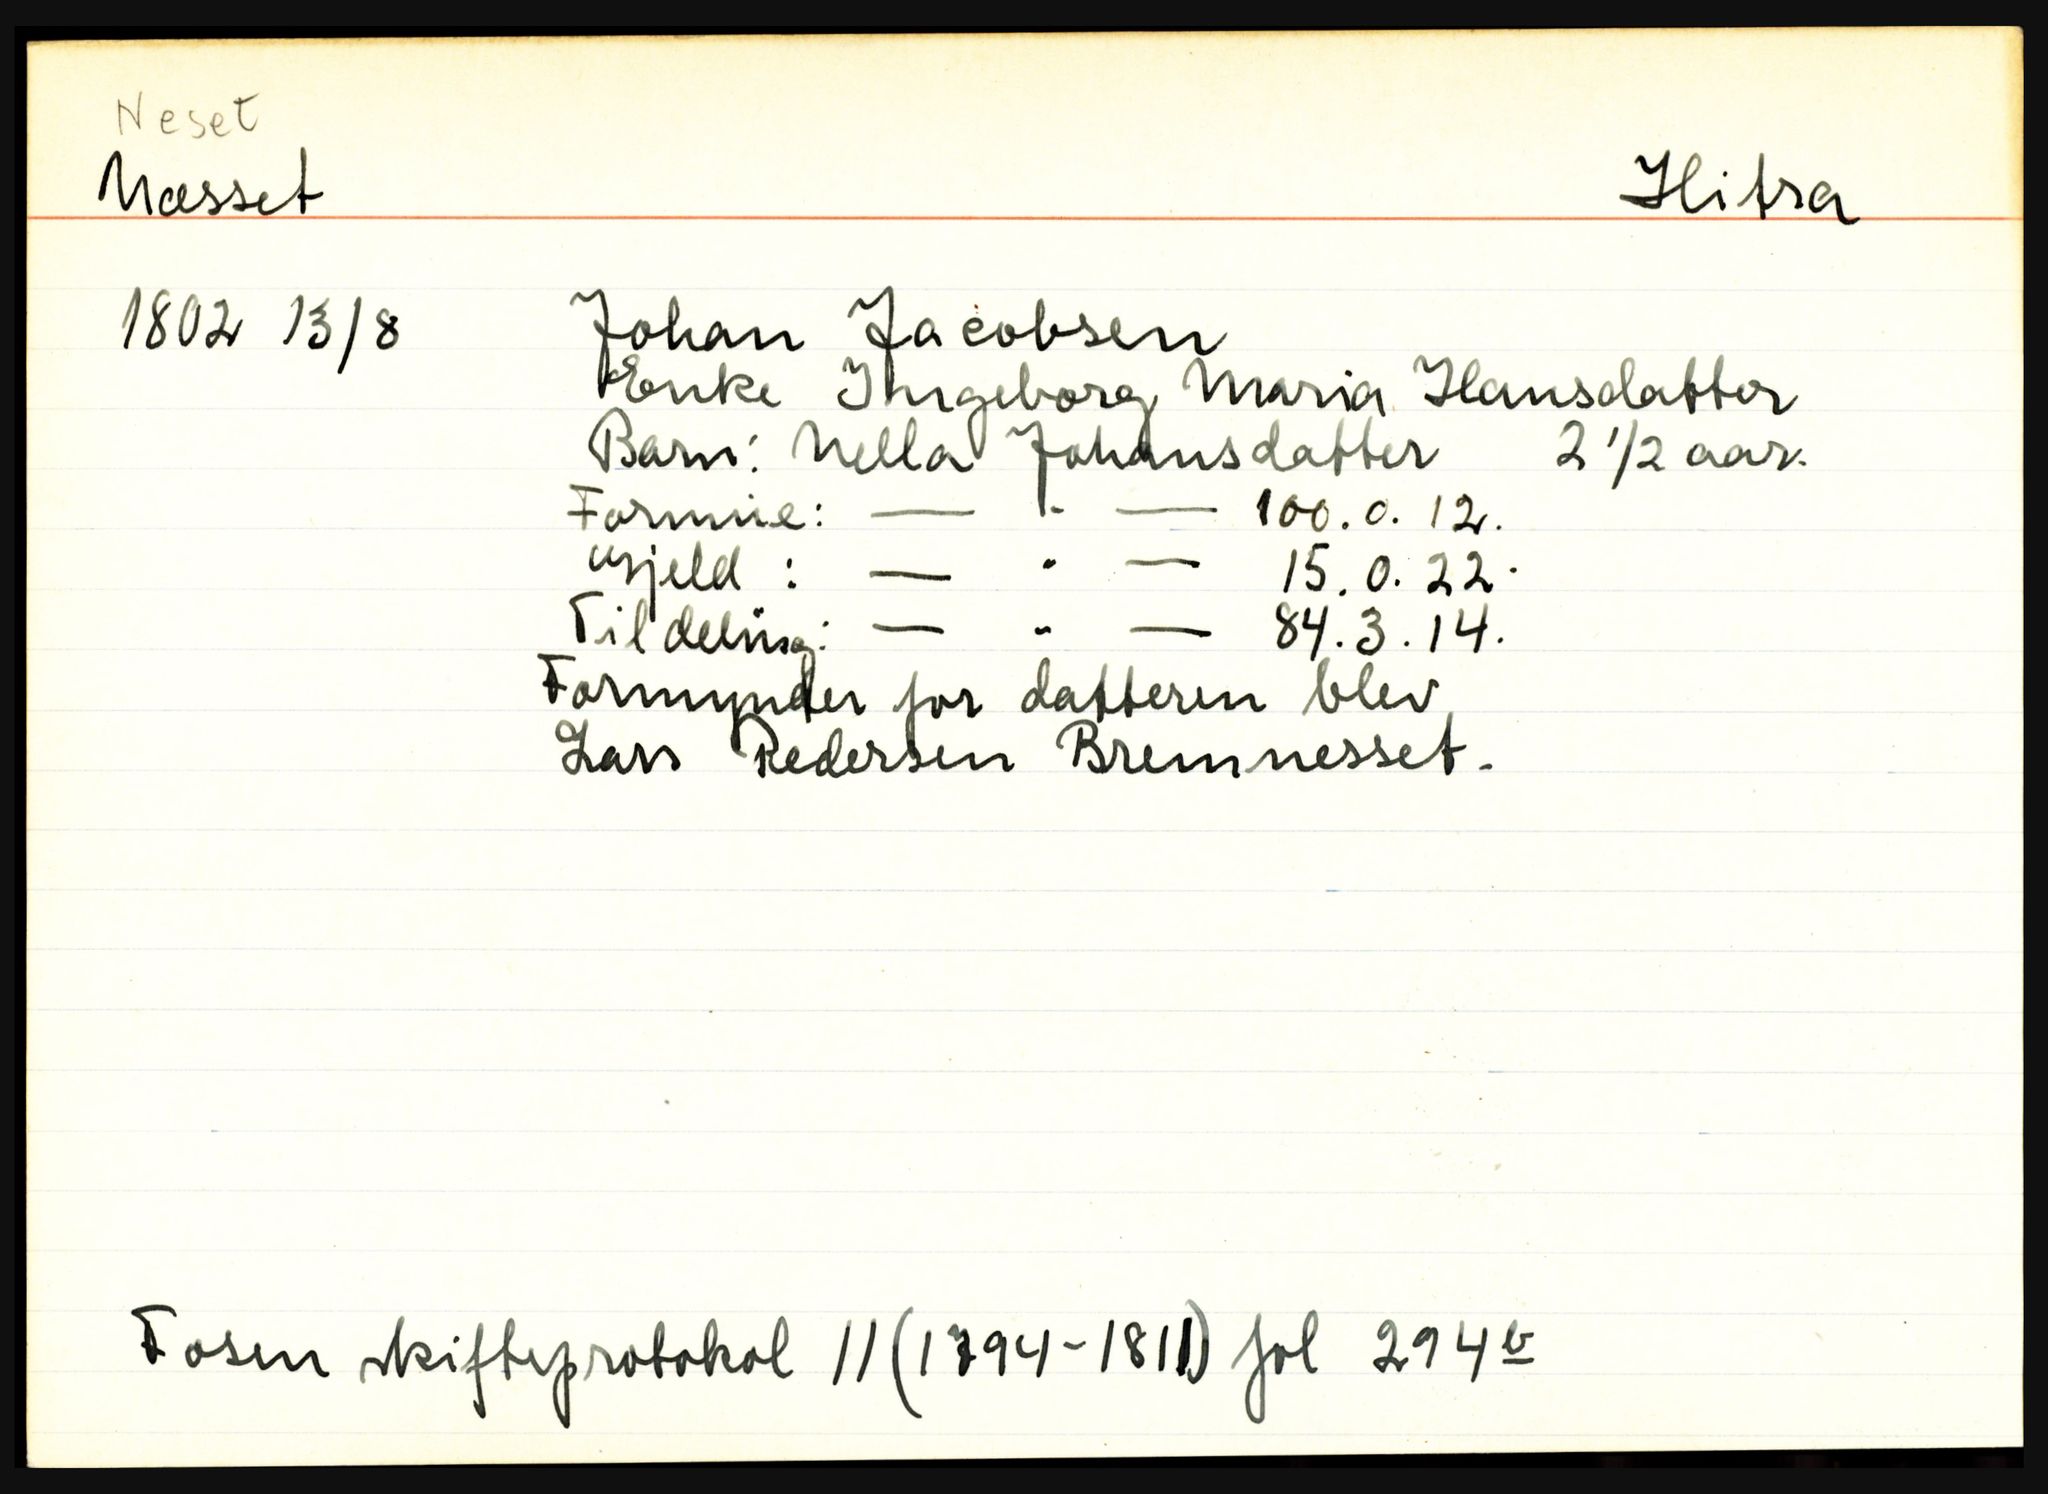 Neset
Næsset Hitra
1802 13/8 Johan Jacobsen
Enke Ingeborg Maria Hansdatter
Barn: Nella Johansdatter 2 1/2 aar.
Formue: — " — 100. 0. 12.
Gjeld : — " — 15. 0. 22.
Til deling: — " — 84. 3. 14.
Formynder for datteren blev
Lars Pedersen Bremnesset.
Fosen skifteprotokol 11 (1794-1811) fol 294b